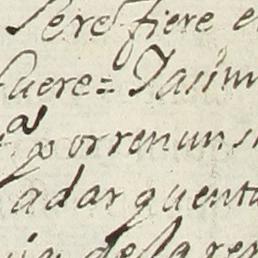 Sere fiere e
fuere = Jasim
por renunsi
a dar quenta
dela ren